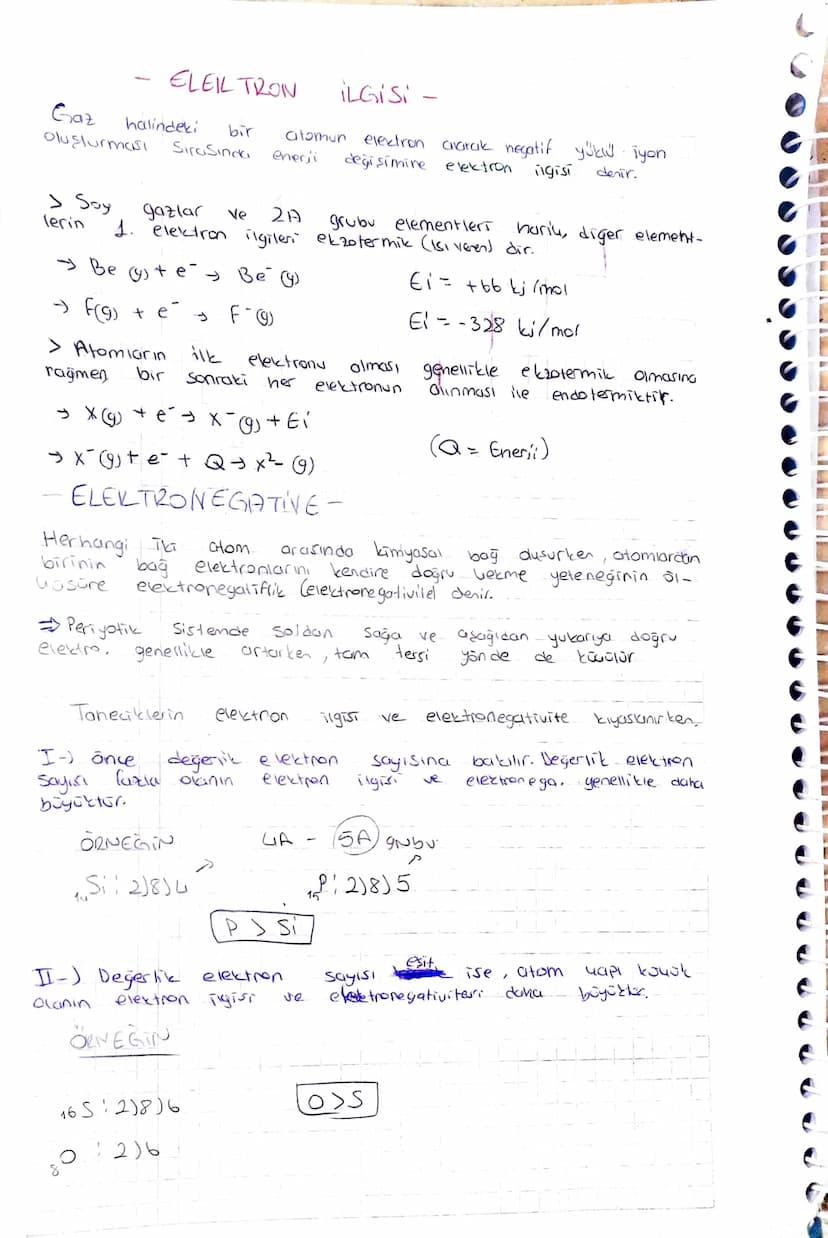 - ELEKTRON İLGİSİ -
Gaz halindeki bir atomun elektron alarak negatif yüklü iyon
oluşturması sırasında enerji değişimine elektron ilgisi denir.
> Soy gazlar ve 2A grubu elementleri hariç, diğer element-
lerin 1. elektron ilgileri ekzotermik (ısı veren) dir.
→ Be (g) + e⁻ → Be⁻ (g) Ei = +66 kj/mol
→ F(g) + e⁻ → F⁻(g) Ei = -328 kj/mol
> Atomların ilk elektronu olması genellikle ekzotermik olmasına
rağmen bir sonraki her elektronun alınması ise endotermiktir.
→ X(g) + e⁻ → X⁻(g) + Ei
→ X⁻(g) + e⁻ + Q → X²⁻ (g) (Q = Enerji)
- ELEKTRONEGATİVE -
Herhangi iki atom arasında kimyasal bağ oluşurken, atomlardan
birinin bağ elektronlarını kendire doğru çekme yeteneğinin öl-
çüsüne elektronegatiflik (elektronegativite) denir.
⇒ Periyotik sistemde soldan sağa ve aşağıdan yukarıya doğru
elektro. genellikle artarken, tam tersi yönde de küçülür
Taneciklerin elektron ilgisi ve elektronegativite kıyaslanırken,
I-) önce değerlik elektron sayısına bakılır. Değerlik elektron
sayısı fazla olanın elektron ilgisi ve elektronega. genellikle daha
büyüktür.
ÖRNEĞİN 4A - 5A grubu
₁₄Si : 2)8)4 ₁₅P : 2)8)5
P > Si
II-) Değerlik elektron sayısı eşit ise, atom çapı küçük
olanın elektron ilgisi ve elektronegativitesi daha büyüktür.
ÖRNEĞİN
₁₆S : 2)8)6 O>S
₈O : 2)6